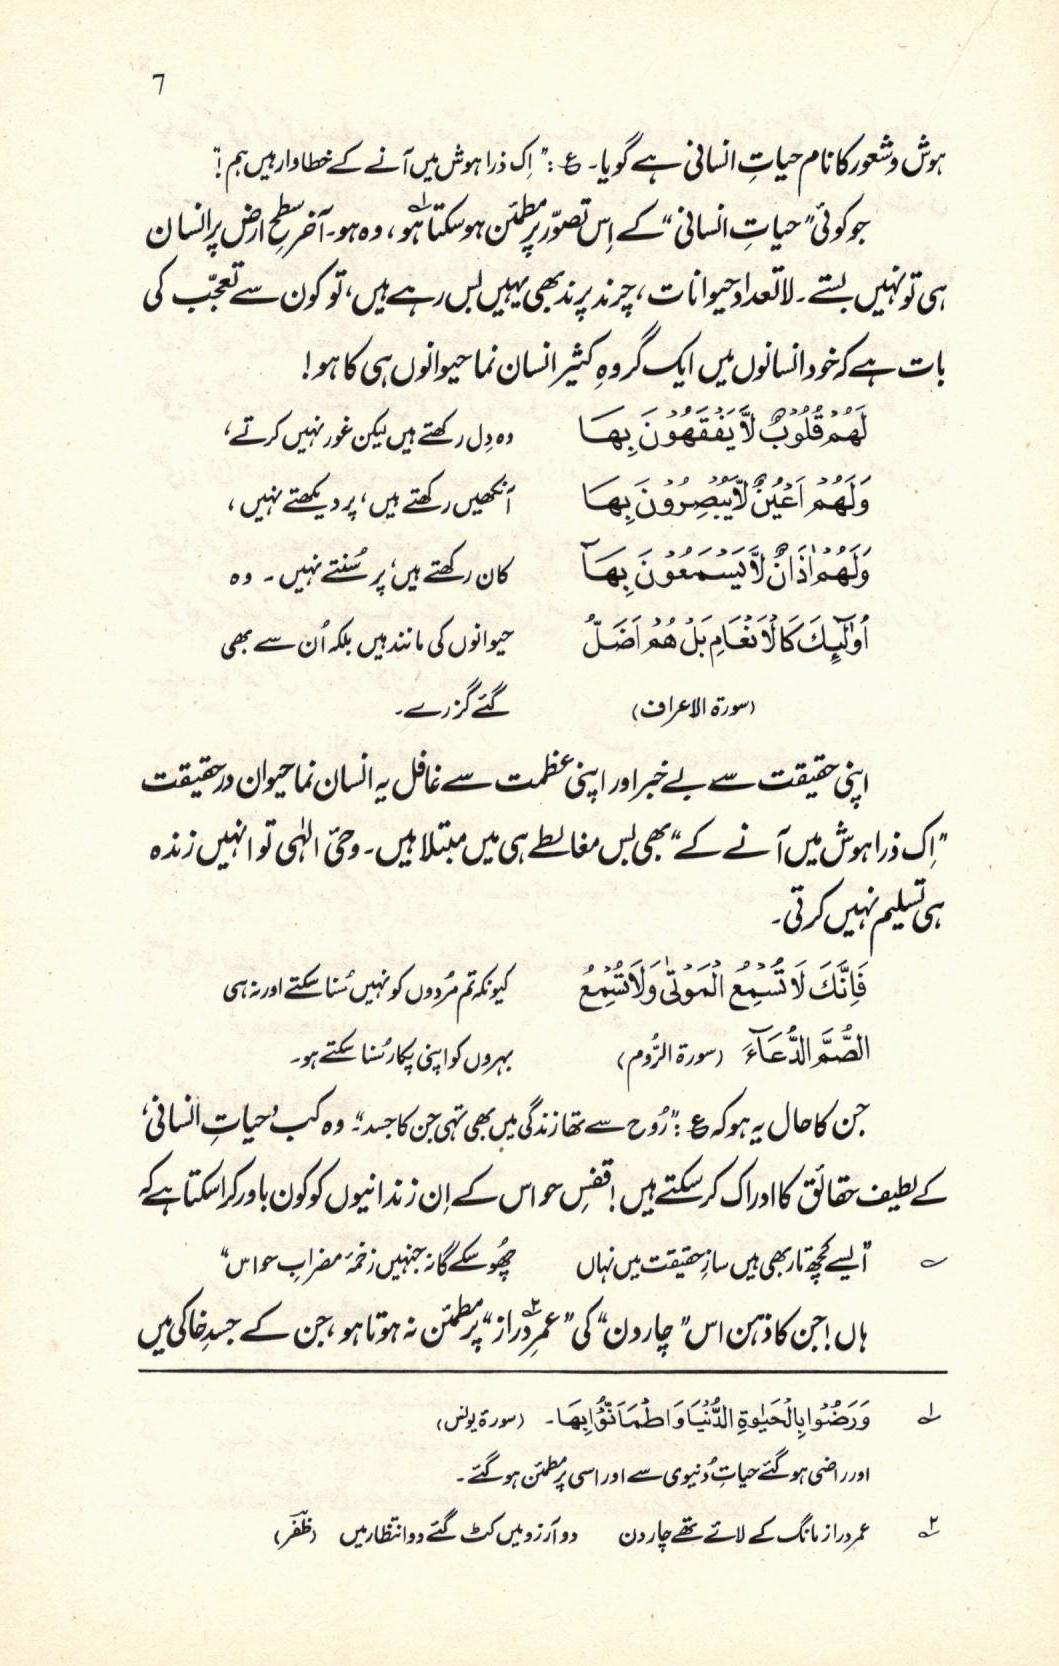 ٦
ہوش و شعور کا نام حیاتِ انسانی ہے گویا۔ ع: "اِک ذرا ہوش میں آنے کے خطاوار ہیں ہم!"
جو کوئی "حیاتِ انسانی" کے اِس تصوّر پر مطمئن ہو سکتا ہو۱؎، وہ ہو۔ آخر سطحِ ارض پر انسان
ہی تو نہیں بستے۔ لاتعداد حیوانات، چرند پرند بھی یہیں بس رہے ہیں، تو کون سے تعجّب کی
بات ہے کہ خود انسانوں میں ایک گروہِ کثیر انسان نما حیوانوں ہی کا ہو!
لَهُمْ قُلُوْبٌ لَّا يَفْقَهُوْنَ بِهَا وہ دِل رکھتے ہیں لیکن غور نہیں کرتے،
وَلَهُمْ اَعْيُنٌ لَّا يُبْصِرُوْنَ بِهَا آنکھیں رکھتے ہیں، پر دیکھتے نہیں،
وَلَهُمْ اٰذَانٌ لَّا يَسْمَعُوْنَ بِهَآ کان رکھتے ہیں، پر سُنتے نہیں۔ وہ
اُولٰٓئِكَ كَالْاَنْعَامِ بَلْ هُمْ اَضَلُّ حیوانوں کی مانند ہیں بلکہ اُن سے بھی
(سورۃ الاعراف) گئے گزرے۔
اپنی حقیقت سے بے خبر اور اپنی عظمت سے غافل یہ انسان نما حیوان درحقیقت
"اِک ذرا ہوش میں آنے کے" بھی بس مغالطے ہی میں مبتلا ہیں۔ وحیٔ الٰہی تو انہیں زندہ
ہی تسلیم نہیں کرتی۔
فَاِنَّكَ لَا تُسْمِعُ الْمَوْتٰى وَلَا تُسْمِعُ کیونکہ تم مُردوں کو نہیں سُنا سکتے اور نہ ہی
الصُّمَّ الدُّعَآءَ (سورۃ الرُّوم) بہروں کو اپنی پکار سُنا سکتے ہو۔
جن کا حال یہ ہو کہ ع: "رُوح سے تھا زندگی میں بھی تہی جن کا جسد"۔ وہ کب 'حیاتِ انسانی'
کے لطیف حقائق کا ادراک کر سکتے ہیں! قفسِ حواس کے اِن زندانیوں کو کون باور کرا سکتا ہے کہ
؎ "ایسے کچھ تار بھی ہیں سازِ حقیقت میں نہاں چھُو سکے گا نہ جنہیں زخمۂ مضرابِ حواس"
ہاں! جن کا ذہن اس "چار دن" کی "عمرِ دراز۲؎" پر مطمئن نہ ہوتا ہو، جن کے جسدِ خاکی میں
۱؎ وَرَضُوْا بِالْحَيٰوةِ الدُّنْيَا وَاطْمَاَنُّوْا بِهَا۔ (سورۃ یونس)
اور راضی ہو گئے حیاتِ دُنیوی سے اور اسی پر مطمئن ہو گئے۔
۲؎ عمر دراز مانگ کے لائے تھے چار دن دو آرزو میں کٹ گئے دو انتظار میں (ظفؔر)